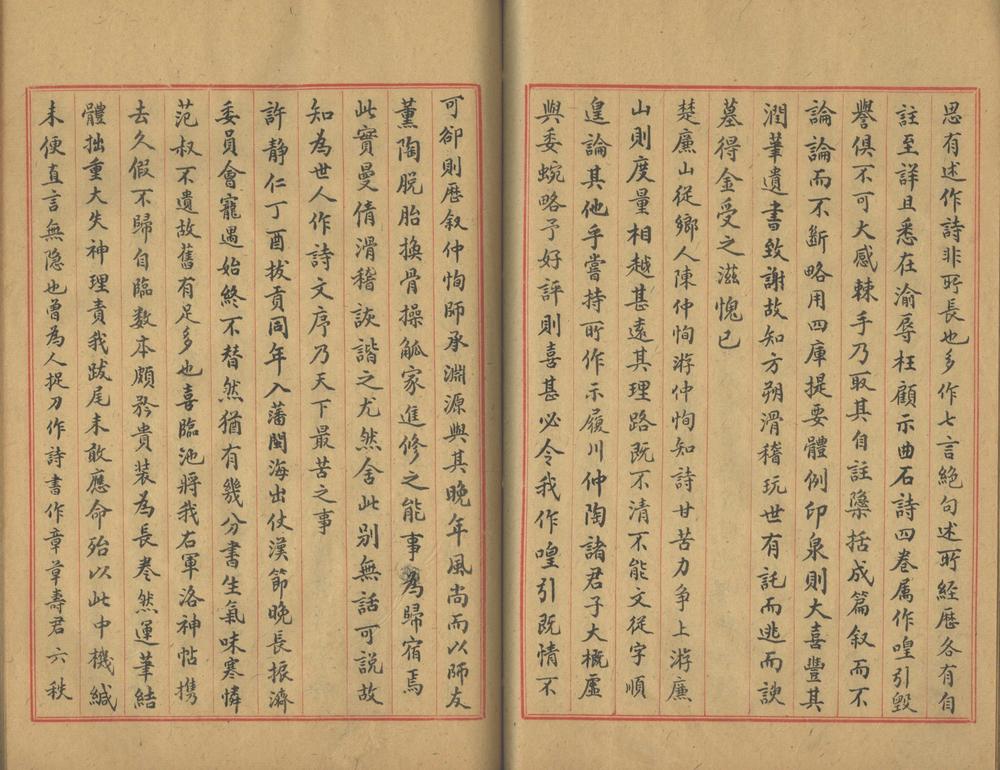 思有述作詩非所長也多作七言絕句述所經歷各有自
註至詳且悉在渝辱枉顧示曲石詩四卷属作喤引毀
譽俱不可大感棘手乃取其自註檃括成篇叙而不
論論而不斷略用四庫提要體例印泉則大喜豐其
潤筆遺書致謝故知方朔滑稽玩世有託而逃而諛
墓得金受之滋愧已
楚廉山從鄉人陳仲恂游仲恂知詩甘苦力争上游廉
山則度量相越甚遠其理路既不清不能文從字順
遑論其他乎嘗持所作示履川仲陶諸君子大概虛
與委蜿略予好評則喜甚必令我作喤引既情不
可卻則歷叙仲恂師承淵源與其晚年風尚而以師友
薰陶脫胎換骨操觚家進修之能事為歸宿焉
此實曼倩滑稽詼諧之尤然舍此別無話可説故
知為世人作詩文序乃天下最苦之事
許静仁丁酉拔貢同年入藩閩海出仗漢節晚長振濟
委員會寵遇始終不替然猶有幾分書生氣味寒憐
范叔不遺故舊有足多也喜臨池將我右軍洛神帖攜
去久假不歸自臨数本頗矜貴装為長卷然運筆結
體拙重大失神理責我跋尾未敢應命殆以此中機緘
未便直言無隐也曾為人捉刀作詩書作章草壽君六秩